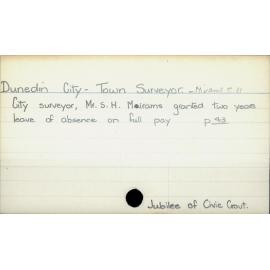 Dunedin City - Town Surveyor. -
City surveyor, Mr. S. H. Mairams granted two years
leave of absence on full pay p 43
Jubilee of Civic Govt.